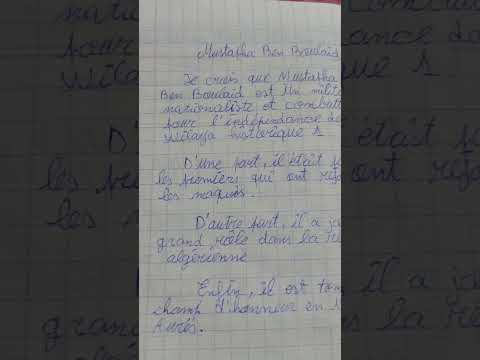 Mustapha Ben Boulaid
Je crois que Mustapha
Ben Boulaid est un milit
nationaliste et combatt
pour l'indépendance de
wilaya historique 1
D'une part, il était
les premiers qui ont rejo
les maquis.
D'autre part, il a jo
grand rôle dans la ré
algérienne
Enfin, il est tom
champ d'honneur en 1
Aurès.